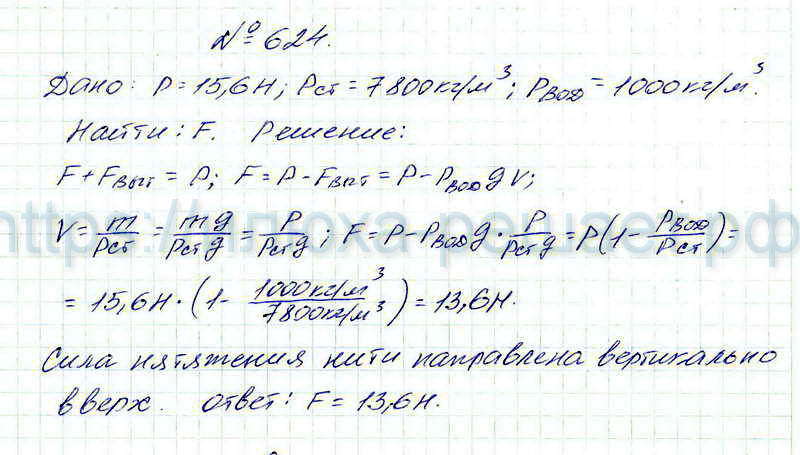 № 624.
Дано: P = 15,6 Н; ρст = 7800 кг/м³; ρвод = 1000 кг/м³.
Найти: F. Решение:
F + Fвыт = P; F = P - Fвыт = P - ρвод g V;
V = m/ρст = mg/ρст g = P/ρст g; F = P - ρвод g · P/ρст g = P(1 - ρвод/ρст) =
= 15,6 Н · (1 - 1000 кг/м³/7800 кг/м³) = 13,6 Н.
Сила нятяжения нити направлена вертикально
вверх. ответ: F = 13,6 Н.